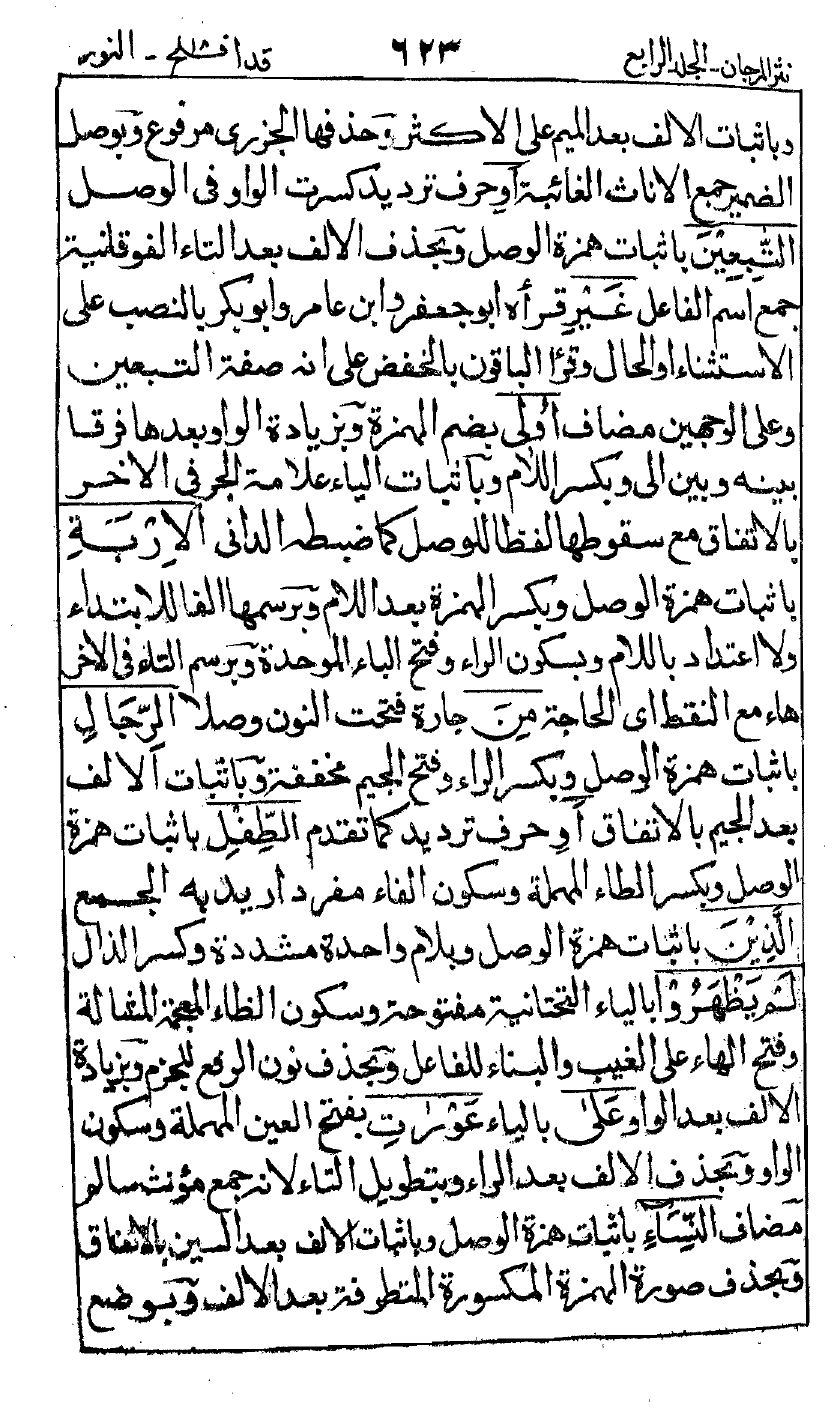 نثر المرجان - الجلد الرابع ٦٢٣ قد افلح - النور
وباثبات الالف بعد الميم على الاكثر وحذفها الجزرى مرفوع وبوصل
الضمير جمع الاناث الغائبة أَوِ حرف ترديد كسرت الواو فى الوصل
التّٰبِعِيْنَ باثبات همزة الوصل وبحذف الالف بعد التاء الفوقانية
جمع اسم الفاعل غَيْرِ قرأه ابو جعفر وابن عامر وابو بكر بالنصب على
الاستثناء او الحال وقرأ الباقون بالخفض على انه صفة التبعين
وعلى الوجهين مضاف أُولِى بضم الهمزة وبزيادة الواو بعدها فرقا
بينه وبين الى وبكسر اللام وباثبات الياء علامة الجر فى الاخر
بالاتفاق مع سقوطها لفظا للوصل كما ضبطه الدانى الْإِرْبَةِ
باثبات همزة الوصل وبكسر الهمزة بعد اللام وبرسمها الفا للابتداء
ولا اعتداد باللام وبسكون الراء وفتح الباء الموحدة وبرسم التاء فى الاخر
هاء مع النقط اى الحاجة مِنَ جارة فتحت النون وصلا الرِّجَالِ
باثبات همزة الوصل وبكسر الراء وفتح الجيم مخففة وباثبات الالف
بعد الجيم بالاتفاق أَوِ حرف ترديد كما تقدم الطِّفْلِ باثبات همزة
الوصل وبكسر الطاء المهملة وسكون الفاء مفرد اريد به الجمع
الَّذِيْنَ باثبات همزة الوصل وبلام واحدة مشددة وكسر الذال
لَمْ يَظْهَرُوْا بالياء التحتانية مفتوحة وسكون الظاء المعجمة المشالة
وفتح الهاء على الغيب والبناء للفاعل وبحذف نون الرفع للجزم وبزيادة
الالف بعد الواو عَلٰى بالياء عَوْرٰتِ بفتح العين المهملة وسكون
الواو وبحذف الالف بعد الراء وبتطويل التاء لانه جمع مؤنث سالم
مضاف النِّسَآءِ باثبات همزة الوصل وباثبات الالف بعد السين بالاتفاق
وبحذف صورة الهمزة المكسورة المتطرفة بعد الالف وبوضع